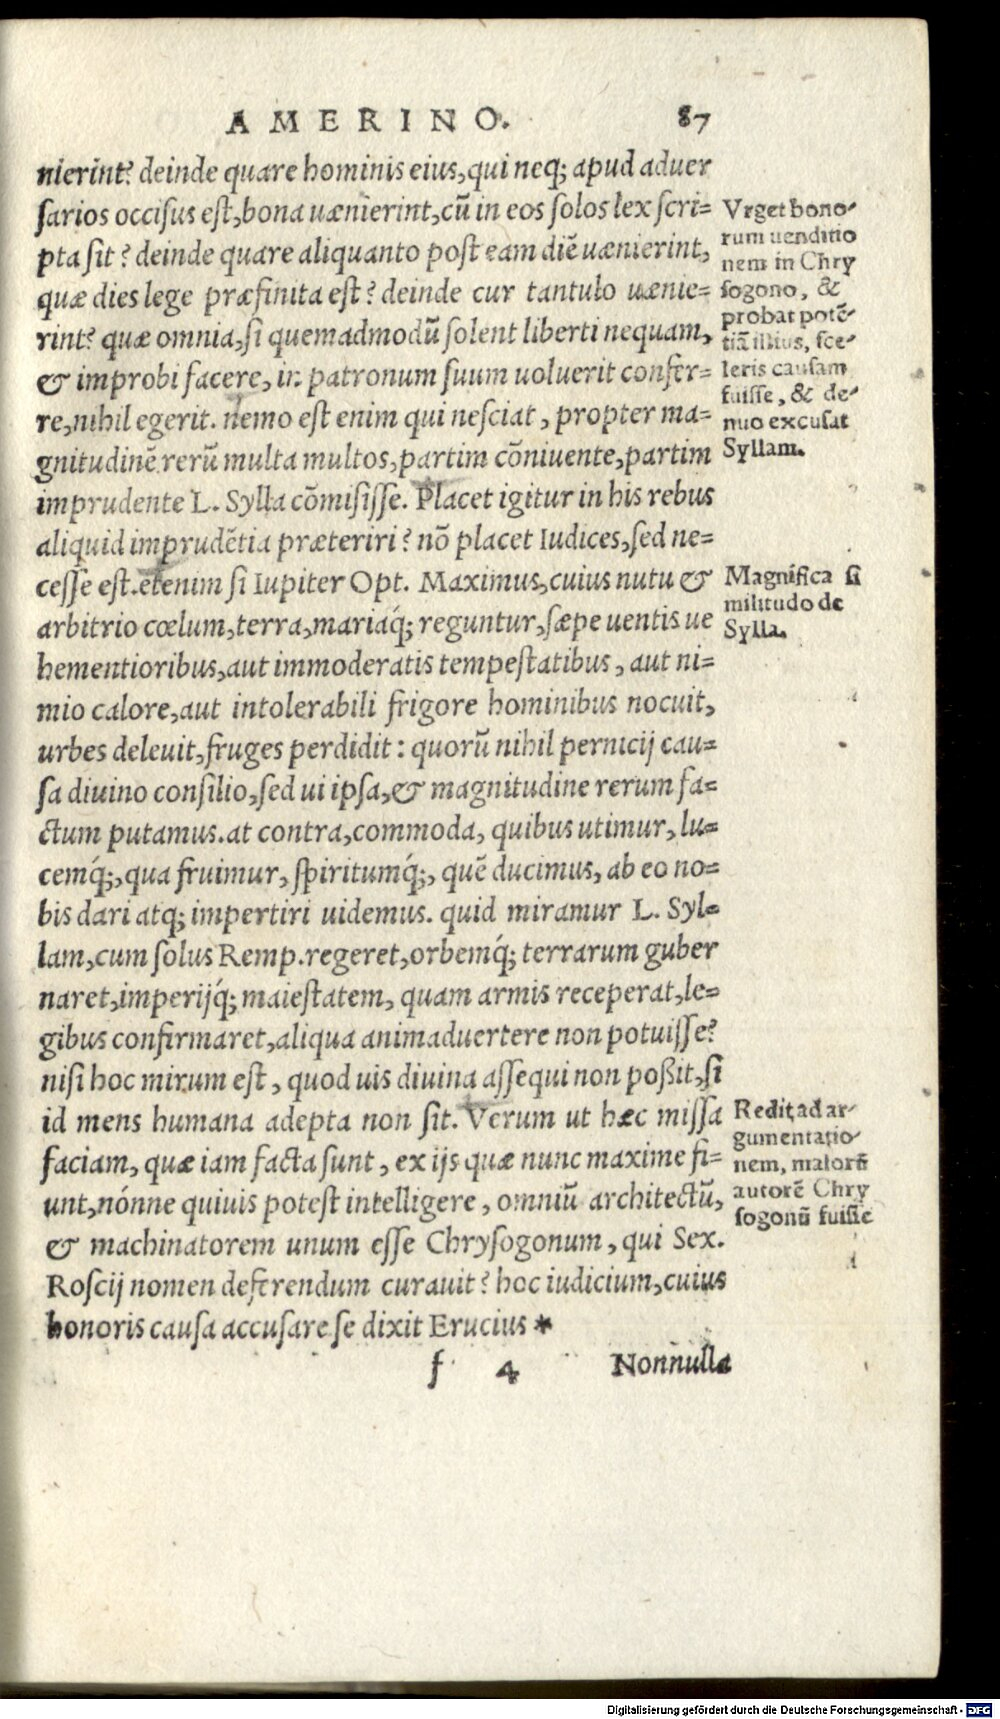 AMERINO. 87
nierint? deinde quare hominis eius, qui neq; apud aduer
sarios occisus est, bona uænierint, cū in eos solos lex scri=
pta sit? deinde quare aliquanto post eam diē uænierint,
quæ dies lege præfinita est? deinde cur tantulo uænie=
rint? quæ omnia, si quemadmodū solent liberti nequam,
& improbi facere, in patronum suum uoluerit confer=
re, nihil egerit. nemo est enim qui nesciat, propter ma=
gnitudinē rerū multa multos, partim cōniuente, partim
imprudente L. Sylla cōmisisse. Placet igitur in his rebus
aliquid imprudētia præteriri? nō placet Iudices, sed ne=
cesse est. etenim si Iupiter Opt. Maximus, cuius nutu &
arbitrio cœlum, terra, mariaq́; reguntur, sæpe uentis ue
hementioribus, aut immoderatis tempestatibus, aut ni=
mio calore, aut intolerabili frigore hominibus nocuit,
urbes deleuit, fruges perdidit: quorū nihil pernicij cau=
sa diuino consilio, sed ui ipsa, & magnitudine rerum fa=
ctum putamus. at contra, commoda, quibus utimur, lu=
cemq́;, qua fruimur, spiritumq́;, quē ducimus, ab eo no=
bis dari atq; impertiri uidemus. quid miramur L. Syl=
lam, cum solus Remp. regeret, orbemq́; terrarum guber
naret, imperijq́; maiestatem, quam armis receperat, le=
gibus confirmaret, aliqua animaduertere non potuisse?
nisi hoc mirum est, quod uis diuina assequi non poßit, si
id mens humana adepta non sit. Verum ut hæc missa
faciam, quæ iam facta sunt, ex ijs quæ nunc maxime fi=
unt, nónne quiuis potest intelligere, omniū architectū,
& machinatorem unum esse Chrysogonum, qui Sex.
Roscij nomen deferendum curauit? hoc iudicium, cuius
honoris causa accusare se dixit Erucius *
f 4 Nonnulla
Vrget bono-
rum uenditio
nem in Chry
sogono, &
probat potē-
tiā illius, sce-
leris causam
fuisse, & de-
nuo excusat
Syllam.
Magnifica si
militudo de
Sylla.
Redit ad ar-
gumentatio-
nem, malorū
autorē Chry
sogonū fuisse
Digitalisierung gefördert durch die Deutsche Forschungsgemeinschaft - DFG